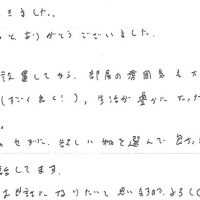 きました。
とありがとうございました。
設置してから、部屋の雰囲気も大
(すごく良く!)、生活が豊かになった
。
のせずに、欲しい物を選んで自分
話してます。
お世話になりたいと思いますので、よろしく